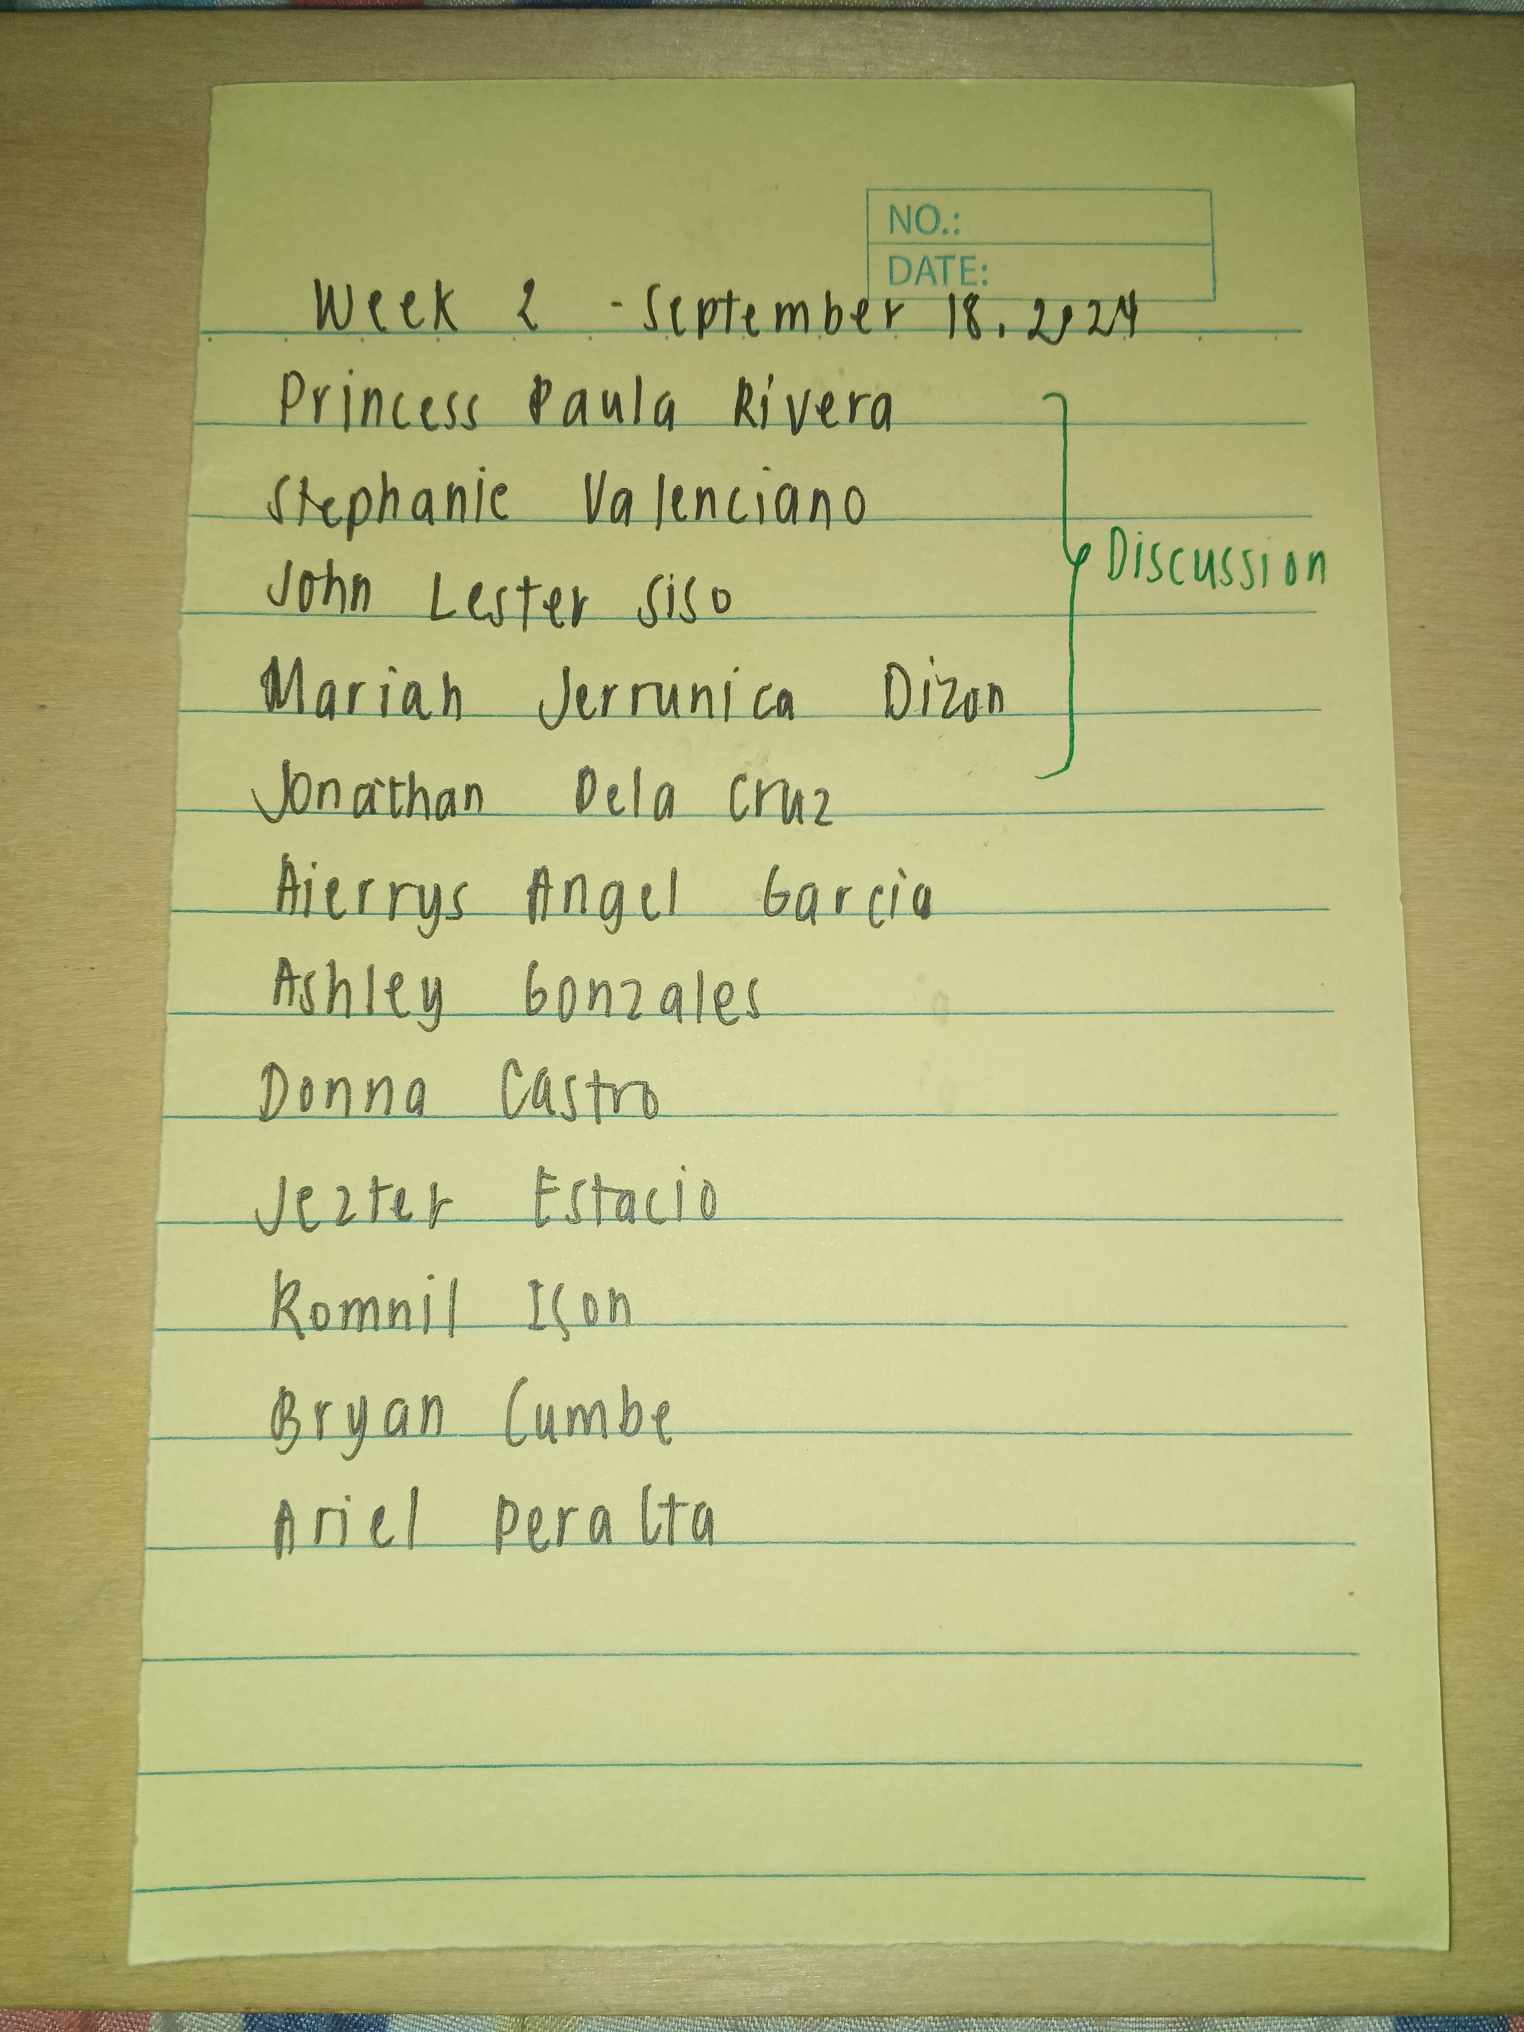 NO.:
DATE:
Week 2 - September 18, 2024
Princess Paula Rivera
Stephanie Valenciano
Discussion
John Lester Siso
Mariah Jerrunica Dizon
Jonathan Dela Cruz
Aierrys Angel Garcia
Ashley Gonzales
Donna Castro
Jezter Estacio
Romnil Ison
Bryan Cumbe
Ariel Peralta